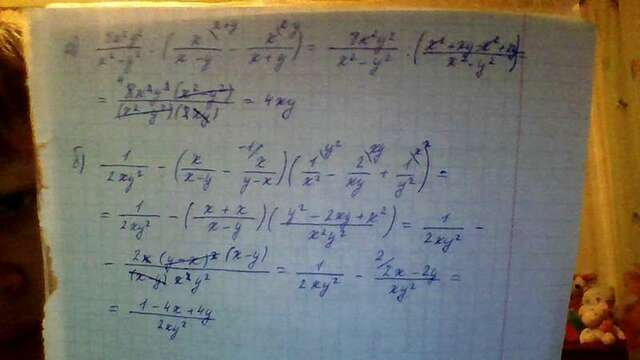 а) 8x²y²/(x²-y²) : (x/(x-y) - x/(x+y)) = 8x²y²/(x²-y²) : ((x²+xy-x²+xy)/(x²-y²)) =
= 8x²y²(x²-y²)/((x²-y²)(2xy)) = 4xy
б) 1/(2xy²) - (x/(x-y) - x/(y-x))(1/x² - 2/(xy) + 1/y²) =
= 1/(2xy²) - ((x+x)/(x-y))((y²-2xy+x²)/(x²y²)) = 1/(2xy²) -
- 2x(y-x)(x-y)/((x-y)x²y²) = 1/(2xy²) - (2x-2y)/(xy²) =
= (1-4x+4y)/(2xy²)